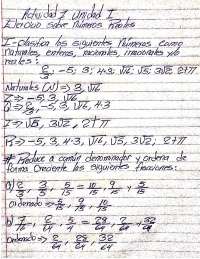 Actividad 1 Unidad I
Ejercicio sobre Números Reales
I- Clasifica los siguientes Números como
naturales, enteros, racionales, irracionales y/o
reales:
2/3, -5; 3; 4.3; √16; √5; 3√2; 2+π
Naturales (N) => 3, √16
Z => -5, 3, √16
Q => 2/3, -5, 3, √16, 4.3
I => √5, 3√2, 2+π
R => -5, 3, 4.3, √16, √5, 3√2, 2+π
# Reduce a común denominador y ordena de
forma creciente las siguientes fracciones:
a) 2/3, 3/5,
ordenado =>
b) 7/16,
ordenado =>